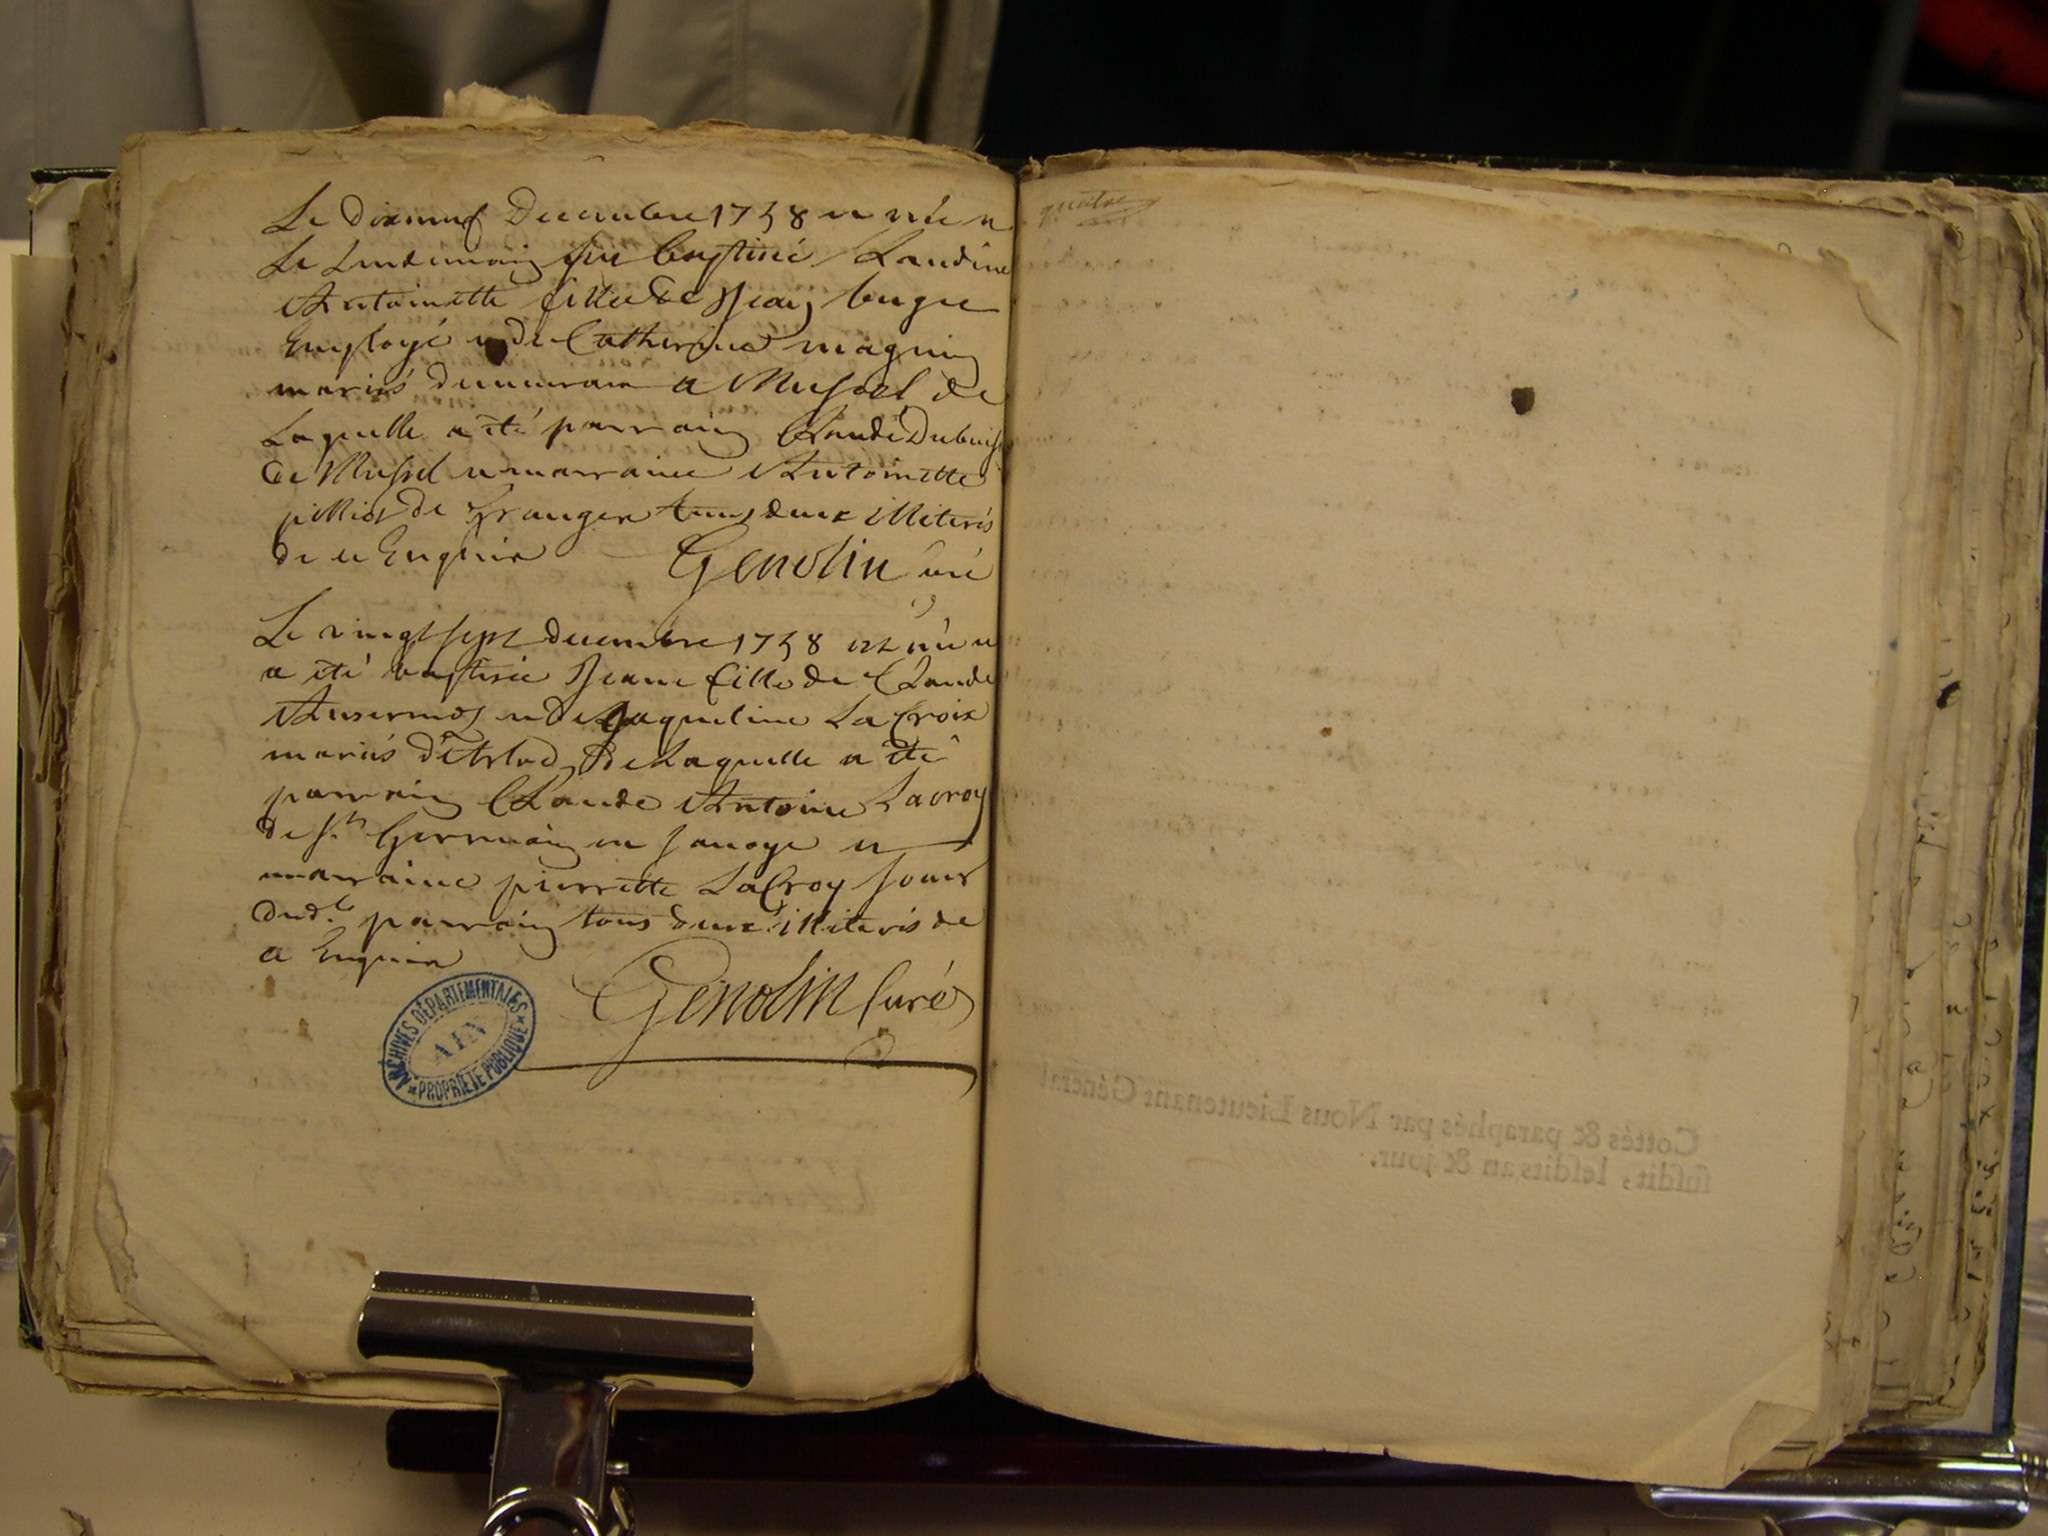 Le dixneuf Decembre 1758 est née et
Le Lendemain fut baptisée Claudine
Antoinette fille de Jean
Employé et de Catherine magnin
mariés demeurant a Mussel de
Laquelle a été parrain Claude Dubuis
de Mussel et marraine Antoinette
de tous deux illiterés
de ce Enquis Genolin curé
Le vingt sept decembre 1758 est née et
a été baptisée Jeane fille de Claude
Ansermos et de Jaqueline La Croix
mariés d'Arlod De Laquelle a été
parrain Claude Antoine Lacroy
de St. Germain en Savoye et
marraine pierrette LaCroy soeur
dud.t parrain tous deux illiterés de
ce Enquis
Genolin Curé
ARCHIVES DÉPARTEMENTALES
AIN
PROPRIÉTÉ PUBLIQUE
quatre
Cottés & paraphés par Nous Lieutenant Général
susdit, lesdits an & jour.